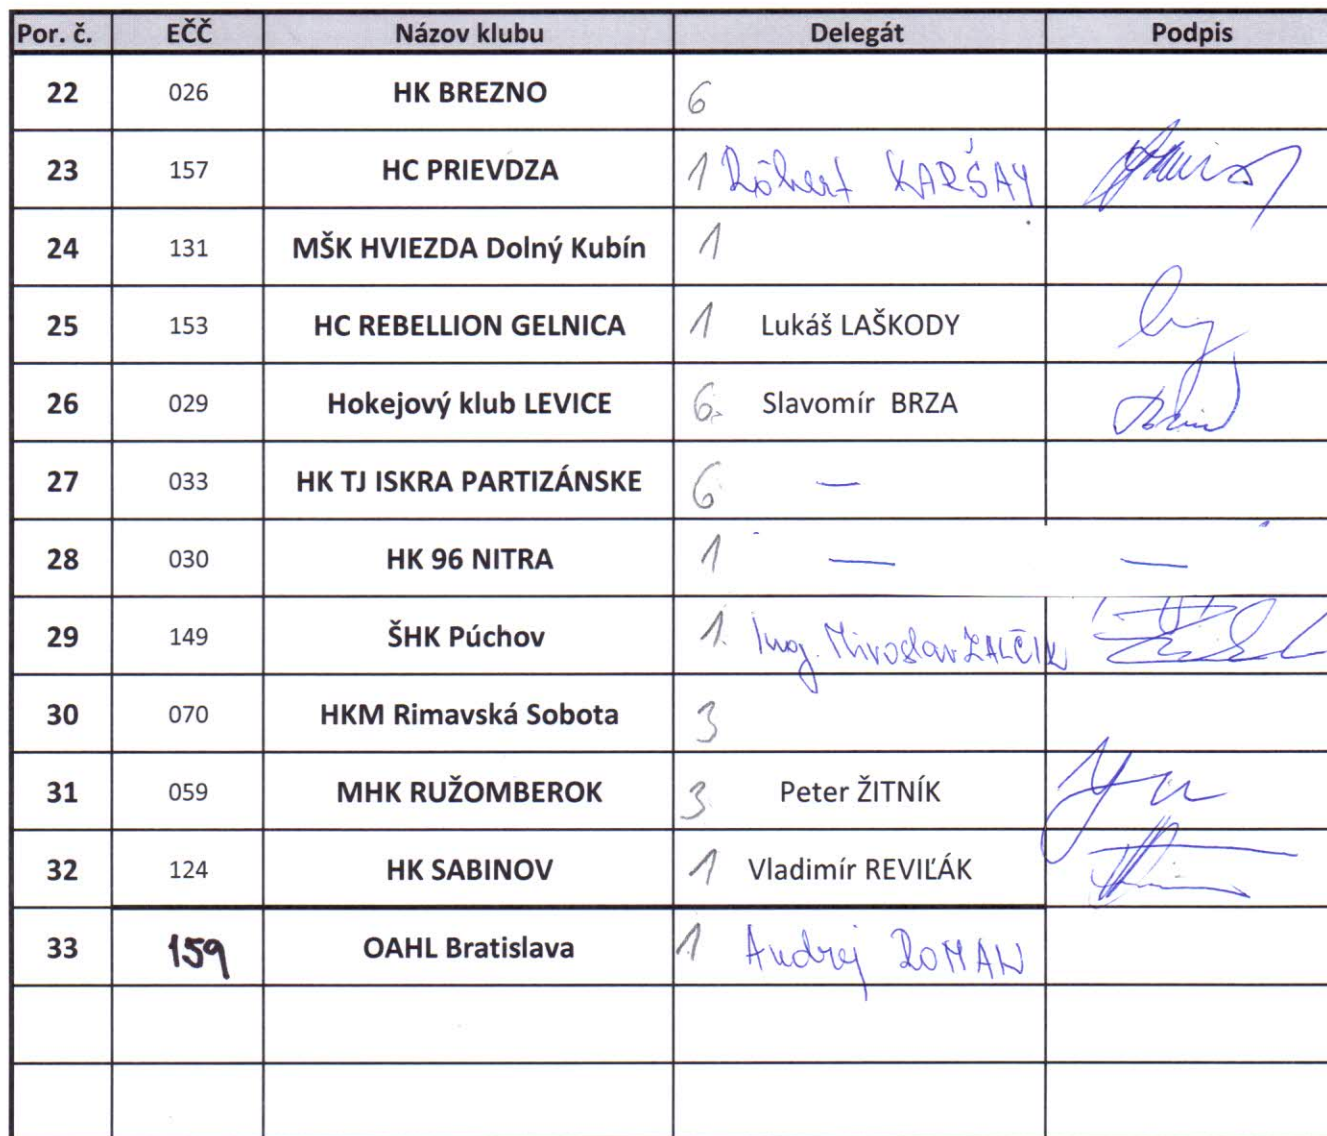 Por. č. EČČ Názov klubu Delegát Podpis
22 026 HK BREZNO 6
23 157 HC PRIEVDZA 1 Róbert KARŠAY
24 131 MŠK HVIEZDA Dolný Kubín 1
25 153 HC REBELLION GELNICA 1 Lukáš LAŠKODY
26 029 Hokejový klub LEVICE 6 Slavomír BRZA
27 033 HK TJ ISKRA PARTIZÁNSKE 6 —
28 030 HK 96 NITRA 1 — —
29 149 ŠHK Púchov 1. Ing. Miroslav ZALČIK
30 070 HKM Rimavská Sobota 3
31 059 MHK RUŽOMBEROK 3 Peter ŽITNÍK
32 124 HK SABINOV 1 Vladimír REVIĽÁK
33 159 OAHL Bratislava 1 Andrej ROMAN